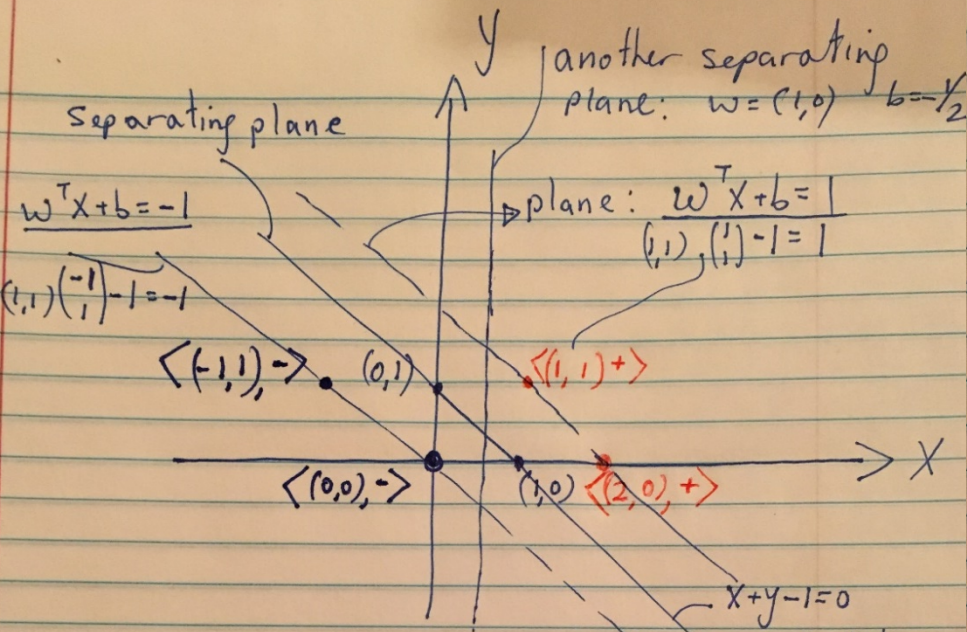 Y
another separating
plane: w = (1,0) b=-1/2
Separating plane
wᵀX+b=-1
(1,1)(-1 1)-1=-1
plane: wᵀX+b=1
(1,1).(1 1)-1=1
<(-1,1),->
(0,1)
<(1,1)+>
X
<(0,0),->
(1,0)
<(2,0),+>
X+y-1=0